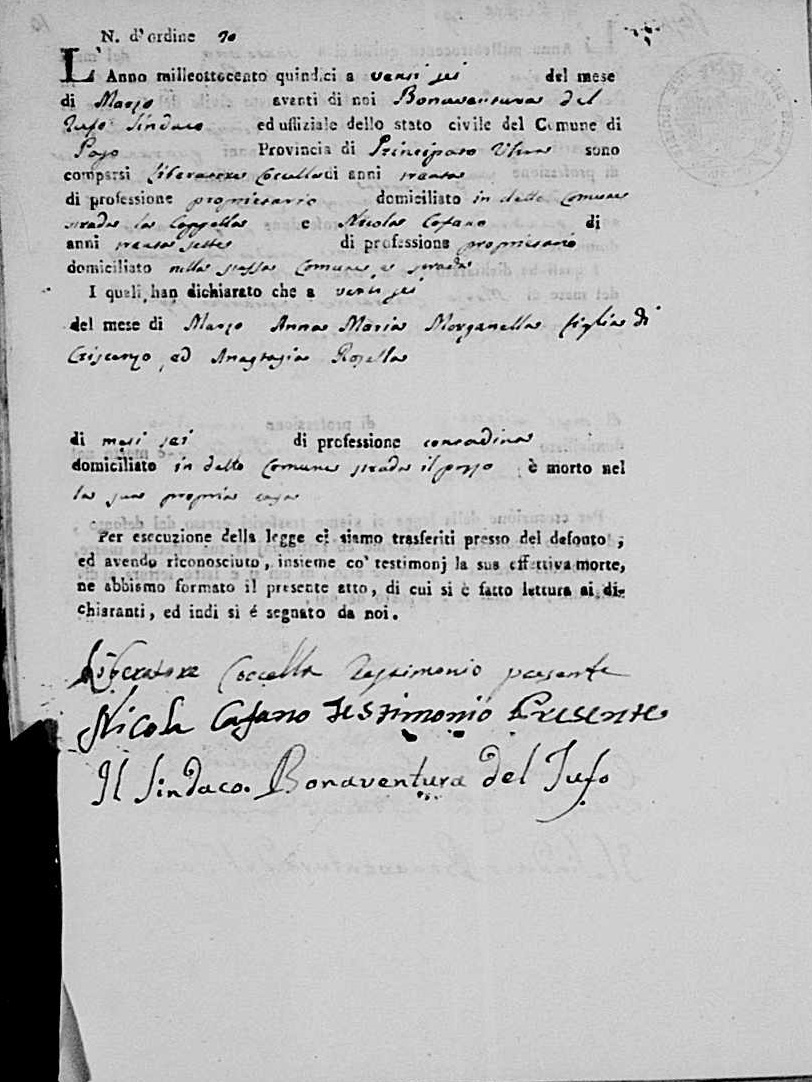 N. d'ordine
L'Anno milleottocento quindici a venti sei del mese
di Marzo avanti di noi Bonaventura del
Tufo Sindaco ed uffiziale dello stato civile del Comune di
Pago Provincia di Principato Ultra sono
comparsi Liberatore Coccella di anni trenta
di professione proprietario domiciliato in detto Comune
strada la Cappella e Nicola Cafano di
anni trenta sette di professione proprietario
domiciliato nella stessa Comune, e strada
I quali han dichiarato che a venti sei
del mese di Marzo Anna Maria Morganella figlia di
Criscenzo, ed Anastasia Rosella
di mesi sei di professione contadina
domiciliato in detto Comune strada il pozzo è morto nel
la sua propria casa
Per esecuzione della legge ci siamo trasferiti presso del defonto;
ed avendo riconosciuto, insieme co' testimonj la sua effettiva morte,
ne abbismo formato il presente atto, di cui si è fatto lettura ai di-
chiaranti, ed indi si é segnato da noi.
Liberatore Coccella Testimonio presente
Nicola Cafano Testimonio Presente
Il Sindaco. Bonaventura del Tufo